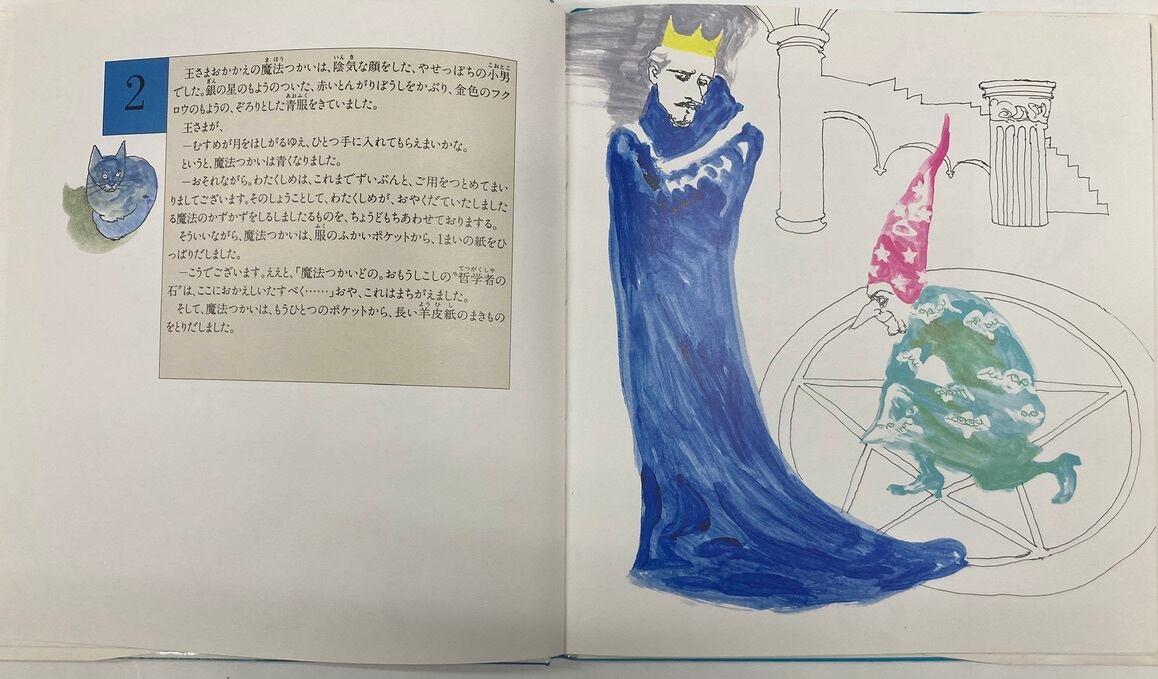 2
王さまおかかえの魔法つかいは、陰気な顔をした、やせっぽちの小男
でした。銀の星のもようのついた、赤いとんがりぼうしをかぶり、金色のフク
ロウのもようの、ぞろりとした青服をきていました。
王さまが、
―むすめが月をほしがるゆえ、ひとつ手に入れてもらえまいかな。
というと、魔法つかいは青くなりました。
―おそれながら。わたくしめは、これまでずいぶんと、ご用をつとめてまい
りましてございます。そのしょうことして、わたくしめが、おやくだていたしました
る魔法のかずかずをしるしましたるものを、ちょうどもちあわせておりまする。
そういいながら、魔法つかいは、服のふかいポケットから、1まいの紙をひ
っぱりだしました。
―こうでございます。ええと、「魔法つかいどの。おもうしこしの"哲学者の
石"は、ここにおかえしいたすべく……」おや、これはまちがえました。
そして、魔法つかいは、もうひとつのポケットから、長い羊皮紙のまきもの
をとりだしました。